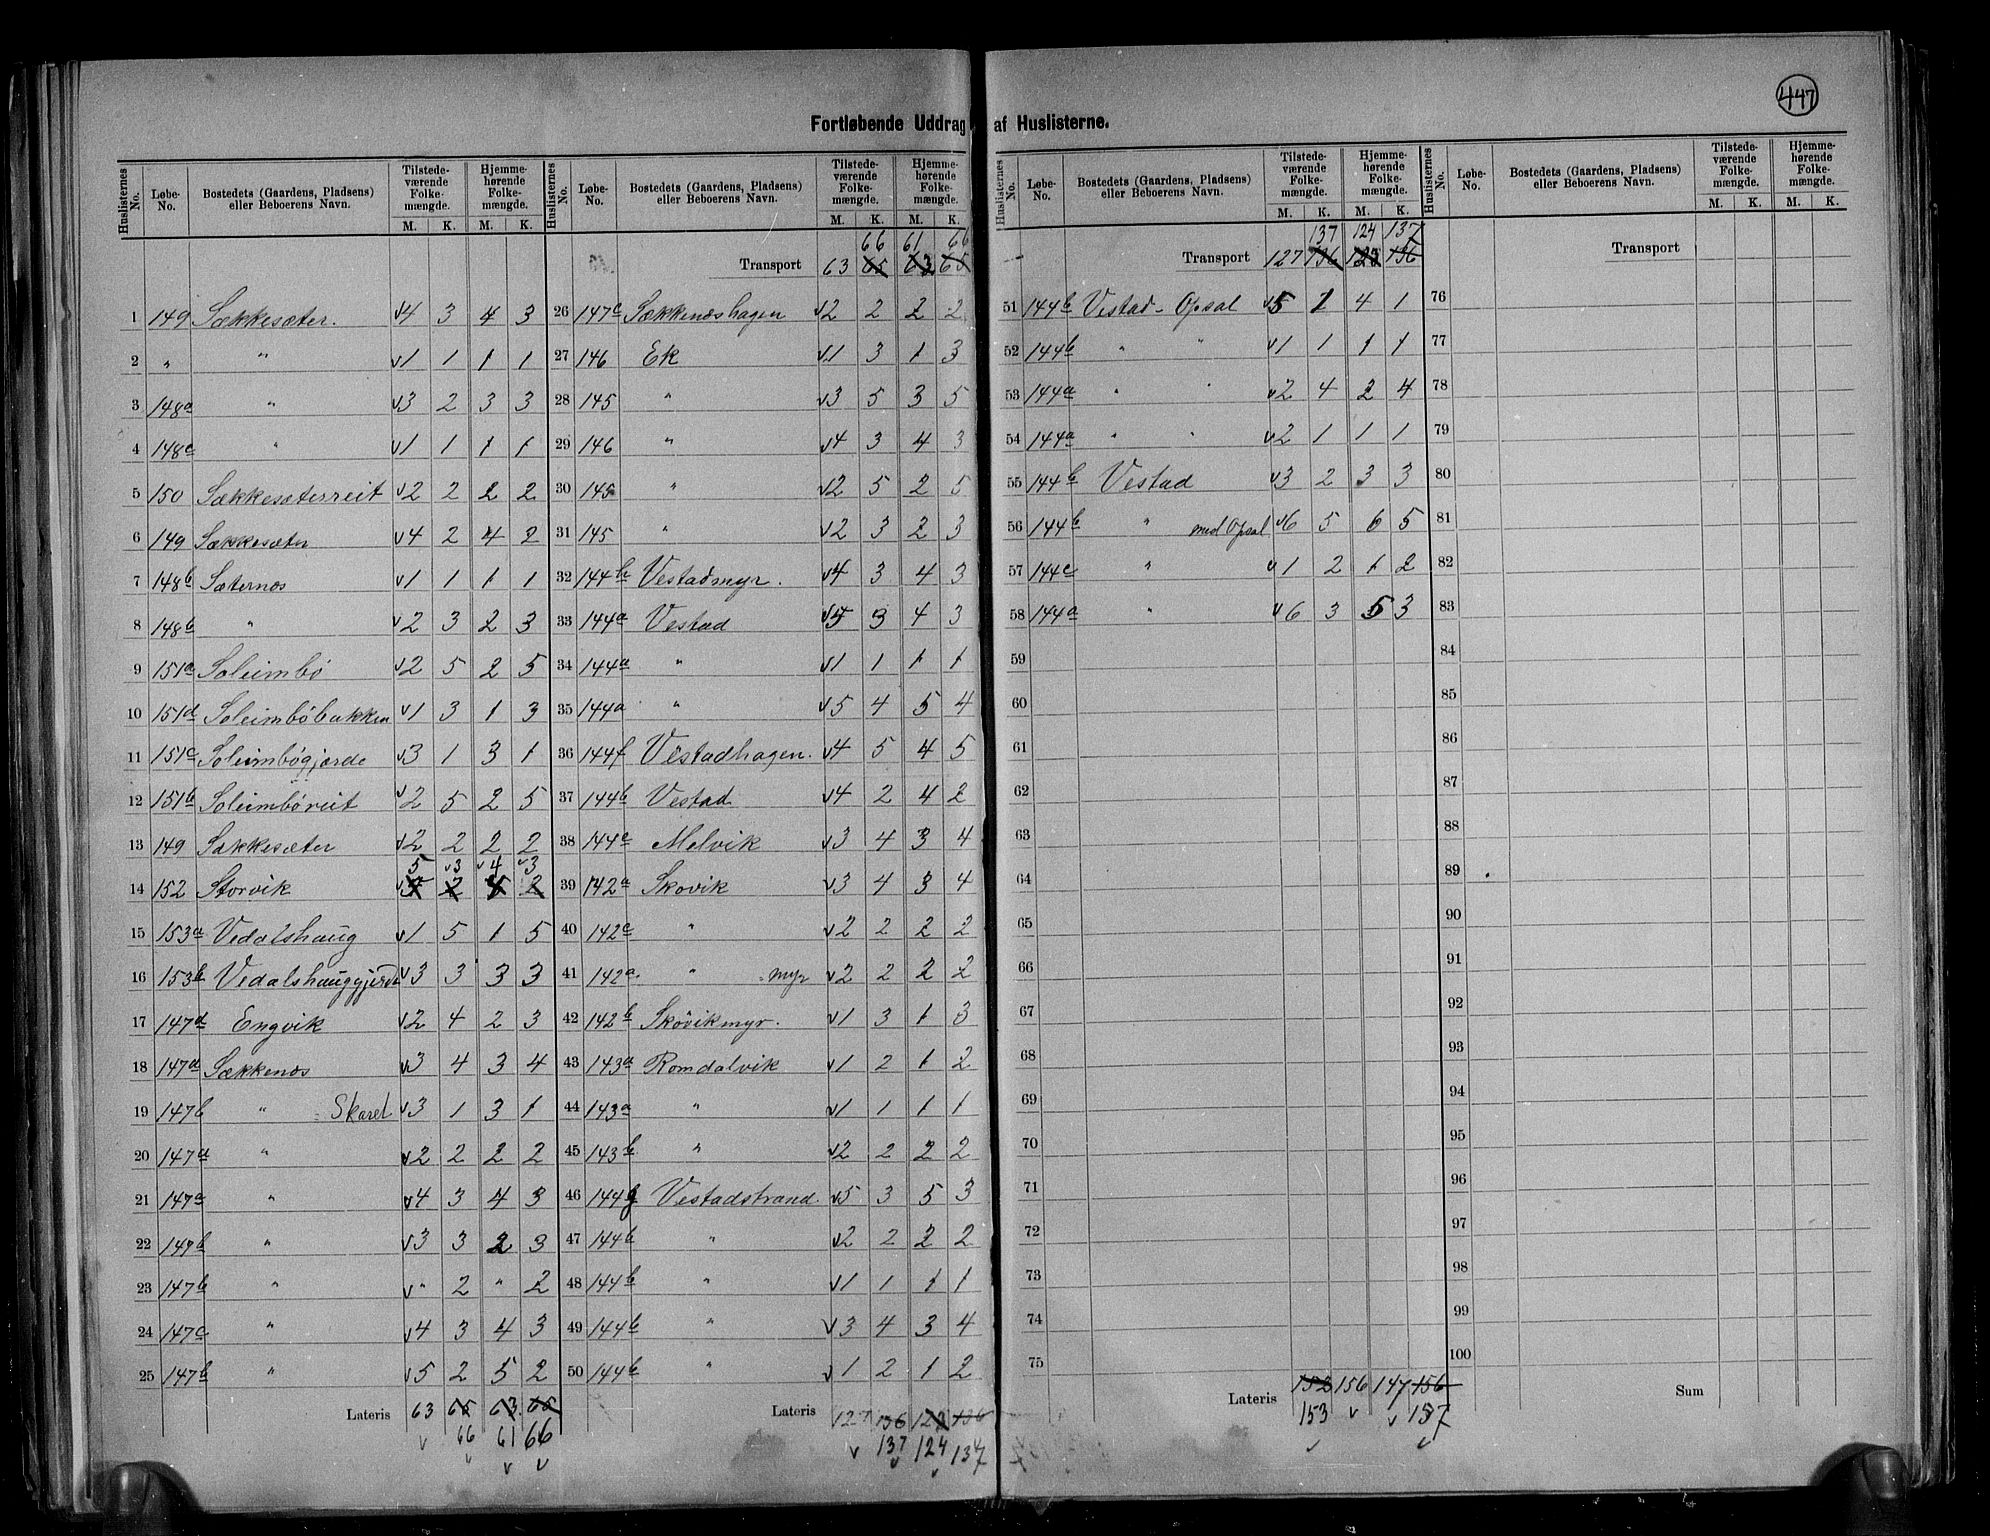 447
Fortløbende Uddrag af Huslisterne.
Huslisternes No. Løbe-No. Bostedets (Gaardens, Pladsens) eller Beboerens Navn. Tilstedeværende Folkemængde. M. K. Hjemmehørende Folkemængde. M. K.
1 149 Sækkesæter. v4 3 4 3
2 " " v1 1 1 1
3 148a " v3 2 3 3
4 148c " v1 1 1 1
5 150 Sækkesæterreit v2 2 2 2
6 149 Sækkesæter v4 2 4 2
7 148b Sæternes v1 1 1 1
8 148b " v2 3 2 3
9 151a Soleimbø v2 5 2 5
10 151d Soleimbøbakken v1 3 1 3
11 151c Soleimbøgjærde v3 1 3 1
12 151b Soleimbøreit v2 5 2 5
13 149 Sækkesæter v2 2 2 2
14 152 Storvik 5 v3 v4 v3
15 153a Vedalshaug v1 5 1 5
16 153b Vedalshauggjerde v3 3 3 3
17 147d Engvik v2 4 2 3
18 147d Sækkenæs v3 4 3 4
19 147b " - Skaret v3 1 3 1
20 147a " v2 2 2 2
21 147a " v4 3 4 3
22 147b " v3 3 2 3
23 147b " v" 2 " 2
24 147c " v4 3 4 3
25 147b " v5 2 5 2
Lateris 63 65 63 65
66 61 66
Huslisternes No. Løbe-No. Bostedets (Gaardens, Pladsens) eller Beboerens Navn. Tilstedeværende Folkemængde. M. K. Hjemmehørende Folkemængde. M. K.
66 61 66
Transport 63 65 63 65
26 147c Sækkenæshagen v2 2 2 2
27 146 Ek v1 3 1 3
28 145 " v3 5 3 5
29 146 " v4 3 4 3
30 145 " v2 5 2 5
31 145 " v2 3 2 3
32 144h Vestadmyr. v4 3 4 3
33 144a Vestad v5 3 4 3
34 144a " v1 1 1 1
35 144a " v5 4 5 4
36 144f Vestadhagen. v4 5 4 5
37 144b Vestad v4 2 4 2
38 144e Melvik v3 4 3 4
39 142a Skovik v3 4 3 4
40 142c " v2 2 2 2
41 142a " - myr v2 2 2 2
42 142b Skovikmyr. v1 3 1 3
43 143a Romdalvik v1 2 1 2
44 143a " v1 1 1 1
45 143b " v2 2 2 2
46 144g Vestadstrand. v5 3 5 3
47 144b " v2 2 2 2
48 144b " v1 1 1 1
49 144b " v3 4 3 4
50 144b " v1 2 1 2
Lateris 127 136 123 136
137 124 137
Huslisternes No. Løbe-No. Bostedets (Gaardens, Pladsens) eller Beboerens Navn. Tilstedeværende Folkemængde. M. K. Hjemmehørende Folkemængde. M. K.
137 124 137
Transport 127 136 123 136
51 144b Vestad - Opsal v5 1 4 1
52 144b " " v1 1 1 1
53 144a " " v2 4 2 4
54 144a " " v2 1 1 1
55 144b Vestad v3 2 3 3
56 144b " med Opsal v6 5 6 5
57 144c " v1 2 1 2
58 144a " v6 3 5 3
59
60
61
62
63
64
65
66
67
68
69
70
71
72
73
74
75
Lateris 152 156 147 156
153 157
Huslisternes No. Løbe-No. Bostedets (Gaardens, Pladsens) eller Beboerens Navn. Tilstedeværende Folkemængde. M. K. Hjemmehørende Folkemængde. M. K.
Transport
76
77
78
79
80
81
82
83
84
85
86
87
88
89
90
91
92
93
94
95
96
97
98
99
100
Sum